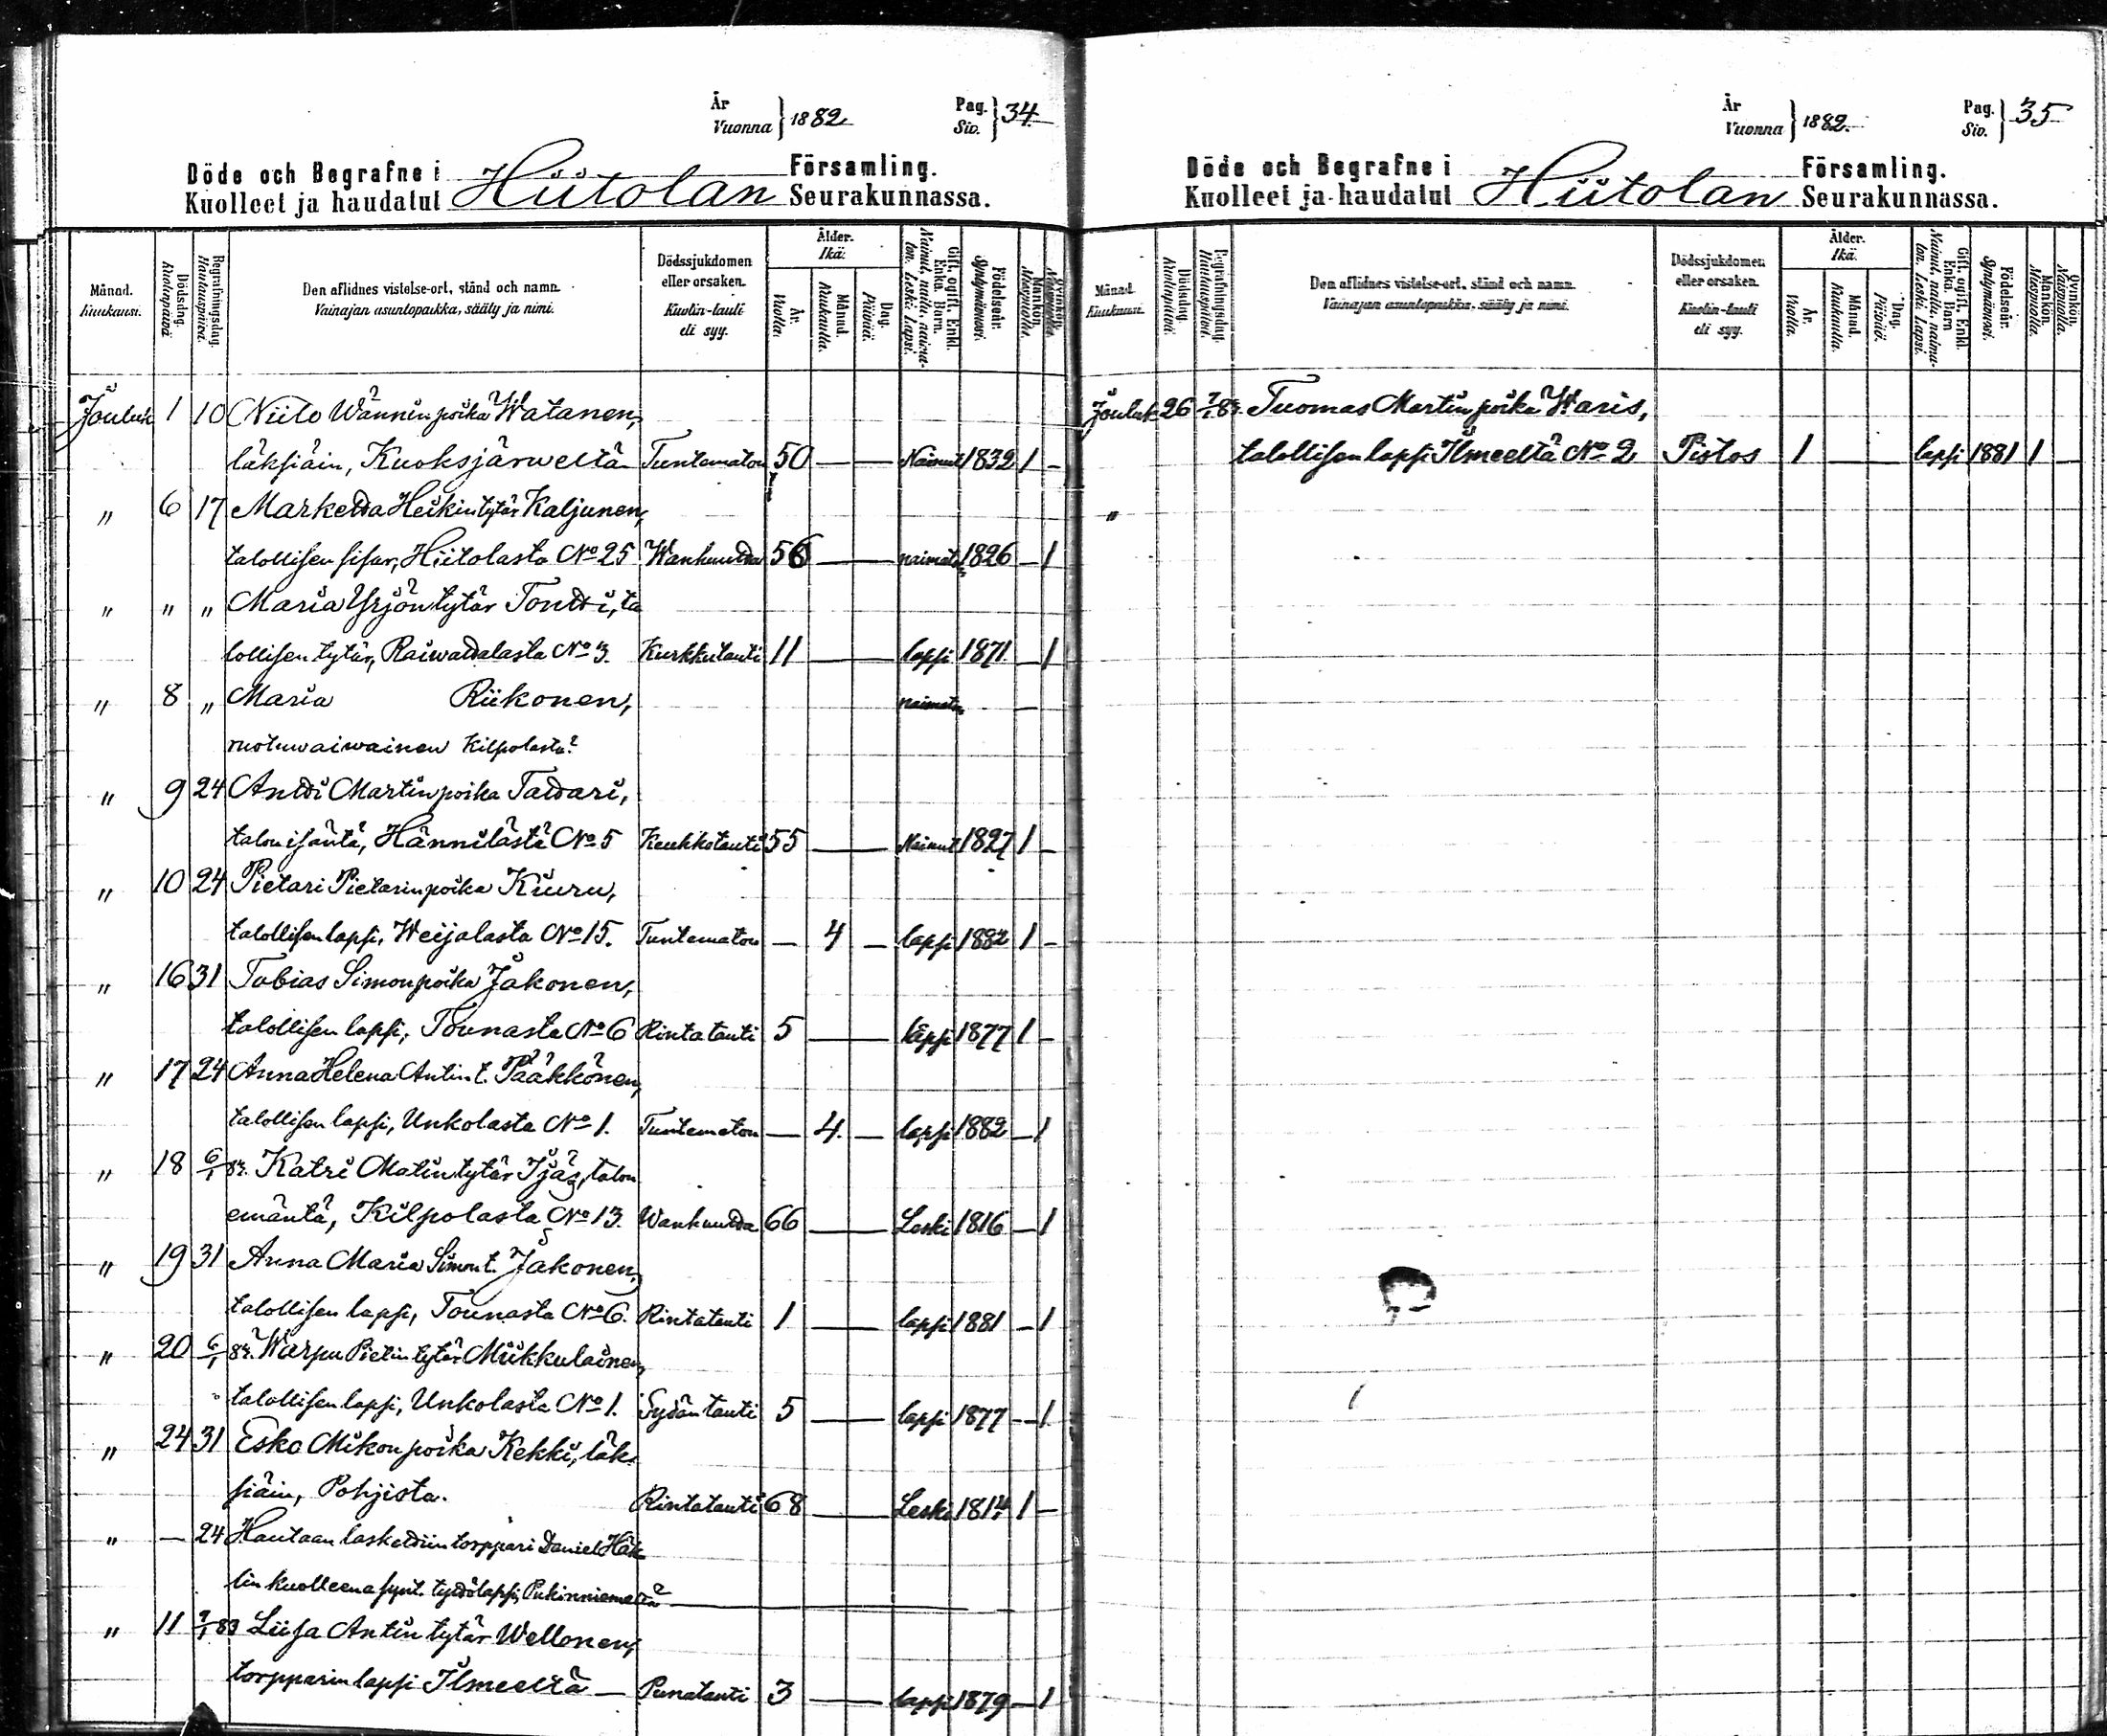 År
Vuonna } 1882
Pag.
Siv. } 34
Döde och Begrafne i Hiitolan Församling.
Kuolleet ja haudatut Seurakunnassa.
Månad. Kuukausi.
Dödsdag. Kuolinpäivä.
Begrafningsdag. Hautauspäivä.
Den aflidnes vistelse-ort, stånd och namn.
Vainajan asuntopaikka, sääty ja nimi.
Dödssjukdomen eller orsaken.
Kuolin-tauti eli syy.
Ålder. Ikä:
År. Vuotta.
Månad. Kuukautta.
Dag. Päivää.
Gift, ogift, Enkl. Enka. Barn.
Nainut, naitu, naimaton. Leski. Lapsi.
Födelseår. Syntymävuosi.
Mankön. Miespuolta.
Qvinkön. Naispuolta.
Jouluk 1 10 Niilo Wännin poika Watanen,
läksiäin, Kuoksjärweltä Tuntematon 50 — — Nainut 1832 1 –
" 6 17 Marketta Heikin tytär Kaljunen,
talollisen sisar, Hiitolasta No 25 Wanhuutta 56 — naimat. 1826 – 1
" " " Maria Yrjön tytär Tontti, ta
lollisen tytär, Raiwattalasta No 3. Kurkkutauti 11 — lapsi 1871 – 1
" 8 " Maria Riikonen, naimaton —
ruotuwaiwainen Kilpolasta?
" 9 24 Antti Martin poika Tattari,
talon isäntä, Hännilästä No 5 Keuhkotauti 55 — Nainut 1827 1 –
" 10 24 Pietari Pietarin poika Kiuru,
talollisen lapsi, Weijalasta No 15. Tuntematon — 4 – lapsi 1882 1 –
" 16 31 Tobias Simon poika Jakonen,
talollisen lapsi, Tounasta No 6 Rintatauti 5 — lapsi 1877 1 –
" 17 24 Anna Helena Antin t. Pääkkönen,
talollisen lapsi, Unkolasta No 1. Tuntematon — 4. – lapsi 1882 – 1
" 18 6/1 83. Katri Matin tytär Ijäs, talon
emäntä, Kilpolasta No 13. Wanhuutta 66 — Leski 1816 – 1
" 19 31 Anna Maria Simon t. Jakonen,
talollisen lapsi, Tounasta No 6. Rintatauti 1 — lapsi 1881 – 1
" 20 6/1 83. Warpu Pietin tytär Miikkulainen,
talollisen lapsi, Unkolasta No 1. Sydäntauti 5 — lapsi 1877 – 1
" 24 31 Esko Mikon poika Kekki, läk
siäin, Pohjista. Rintatauti 68 — Leski 1814 1 –
" — 24 Hautaan laskettiin torppari Daniel Häk
lin kuolleena synt. tyttölapsi, Pukinniemeltä
" 11 7/1 83 Liisa Antin tytär Wellonen,
torpparin lapsi Ilmeeltä — Punatauti 3 — lapsi 1879 – 1
År
Vuonna } 1882.
Pag.
Siv. } 35
Döde och Begrafne i Hiitolan Församling.
Kuolleet ja haudatut Seurakunnassa.
Månad. Kuukausi.
Dödsdag. Kuolinpäivä.
Begrafningsdag. Hautauspäivä.
Den aflidnes vistelse-ort, stånd och namn.
Vainajan asuntopaikka, sääty ja nimi.
Dödssjukdomen eller orsaken.
Kuolin-tauti eli syy.
Ålder. Ikä.
År. Vuotta.
Månad. Kuukautta.
Dag. Päivää.
Gift, ogift, Enkl. Enka. Barn
Nainut, naitu, naimaton. Leski. Lapsi.
Födelseår. Syntymävuosi.
Mankön. Miespuolta.
Qvinkön. Naispuolta.
Jouluk 26 7/1 83. Tuomas Martin poika Waris,
talollisen lapsi Ilmeeltä No 2 Pistos 1 — lapsi 1881 1 –
"